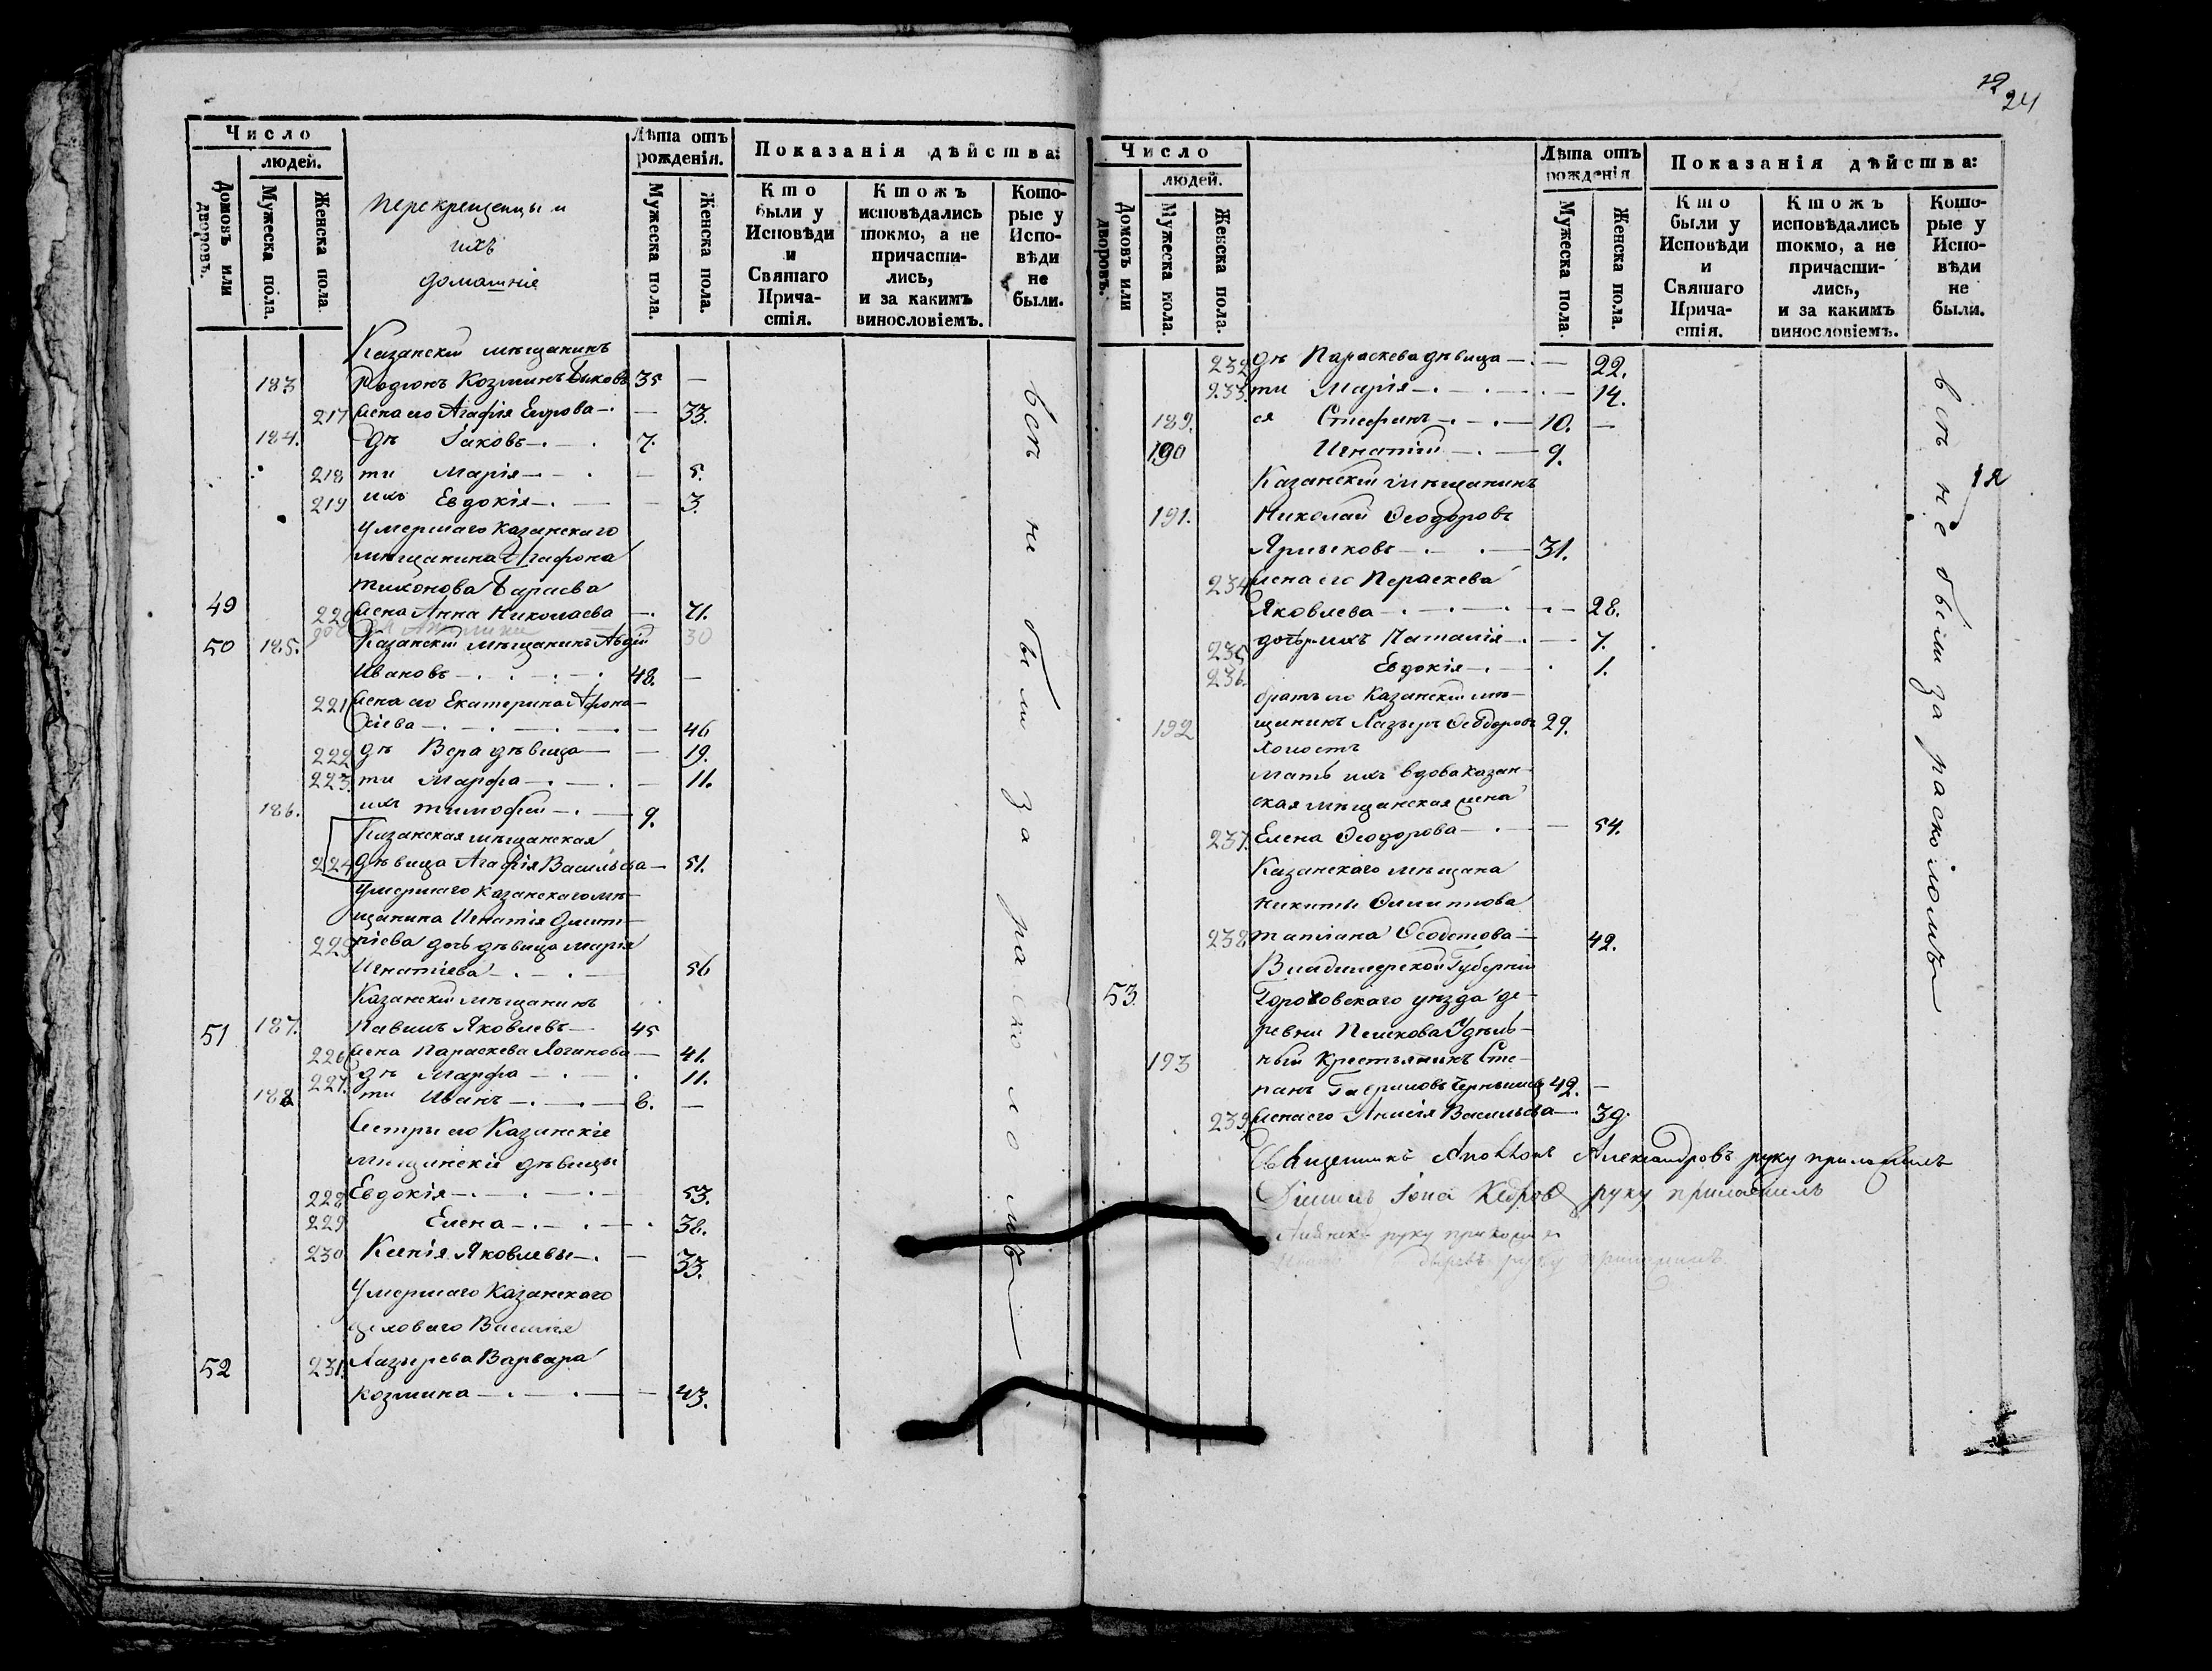 12
24
Число
людей.
Домовъ или дворовъ.
Мужеска пола.
Женска пола.
Перекрещенцы и
ихъ
домашніе
Лѣта отъ рожденія.
Мужеска пола.
Женска пола.
Показанія дѣйства:
Кто были у Исповѣди и Святаго Причастія.
Ктожъ исповѣдались токмо, а не причастились, и за какимъ винословіемъ.
Которые у Исповѣди не были.
Казанскій мѣщанинъ
183 Родіонъ Козминъ Быковъ 35 —
217 жена его Агафія Егорова — 33.
184. дѣ Іаковъ 7.
218 ти Марія — 5.
219 ихъ Евдокія — 3.
умершаго Казанскаго
мѣщанина Агафона
Тихонова Бараева
49 220 жена Анна Николаева — 71.
30
50 185. Казанскій мѣщанинъ Авдій
Ивановъ 48. —
221 жена его Екатерина Афона-
сіева — 46
222 дѣ Вера дѣвица — 19.
223. ти Марфа — 11.
186. ихъ Тимофей 9.
Казанская мѣщанская
224 дѣвица Агафія Васильева — 51.
умершаго Казанскаго мѣ-
щанина Игнатія Дмит-
225 ріева дочь дѣвица Марія
Игнатіева 56
Казанскій мѣщанинъ
51 187. Павелъ Яковлевъ 45
226 жена Параскева Логинова — 41.
227. дѣ Марфа 11.
188 ти Иванъ 6. —
Сестры его Казанскіе
мѣщанскіе дѣвицы
228 Евдокія 53.
229 Елена 38.
230 Ксенія Яковлевы — 33.
Умершаго Казанскаго
цеховаго Василія
52 231. Лазырева Варвара
Козмина — 43.
всѣ не были за расколомъ
Число
людей.
Домовъ или дворовъ.
Мужеска пола.
Женска пола.
Лѣта отъ рожденія
Мужеска пола.
Женска пола.
Показанія дѣйства:
Кто были у Исповѣди и Святаго Причастія.
Ктожъ исповѣдались токмо, а не причастились, и за какимъ винословіемъ.
Которые у Исповѣди не были.
232 дѣ Параскева дѣвица — 22.
233. ти Марія — 14.
189. ея Стефанъ 10. —
190 Игнатій 9.
Казанскій мѣщанинъ
191. Николай Ѳеодоровъ
31.
234 жена его Параскева
Яковлева — 28.
235 дочери ихъ Наталія — 7.
236. Евдокія 1.
братъ его Казанскій мѣ-
192 щанинъ Лазырь Ѳеодоровъ 29.
холостъ
мать ихъ вдова казан-
ская мѣщанская жена
237. Елена Ѳеодорова — 54.
Казанскаго мѣщана
Никиты Филиппова
238 Татіана Ѳеодотова 42.
Владимерской Губерніи
53. Гороховскаго уѣзда де-
ревни Пешкова Удѣль-
193 ный крестьянинъ Сте-
панъ Гавриловъ 49. —
239. жена его Анисія Васильева — 39.
всѣ не были за расколомъ
12
Священникъ Александровъ руку приложилъ
Іона Кедровъ руку приложилъ
руку приложилъ
руку приложилъ